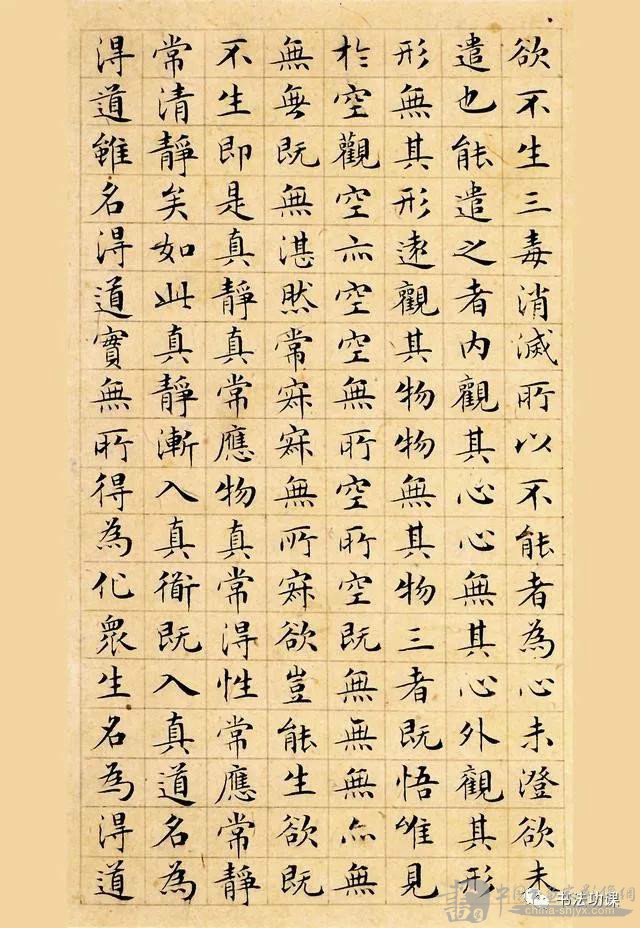 欲不生三毒消滅所以不能者為心未澄欲未
遣也能遣之者內觀其心心無其心外觀其形
形無其形遠觀其物物無其物三者既悟唯見
於空觀空亦空空無所空所空既無無無亦無
無無既無湛然常寂寂無所寂欲豈能生欲既
不生即是真靜真常應物真常得性常應常靜
常清靜矣如此真靜漸入真衟既入真道名為
得道雖名得道實無所得為化眾生名為得道
书法功课
china-shjyx.com